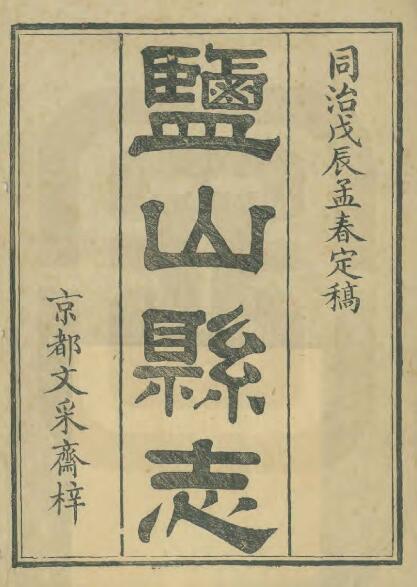 同治戊辰孟春定稿
鹽山縣志
京都文采齋梓